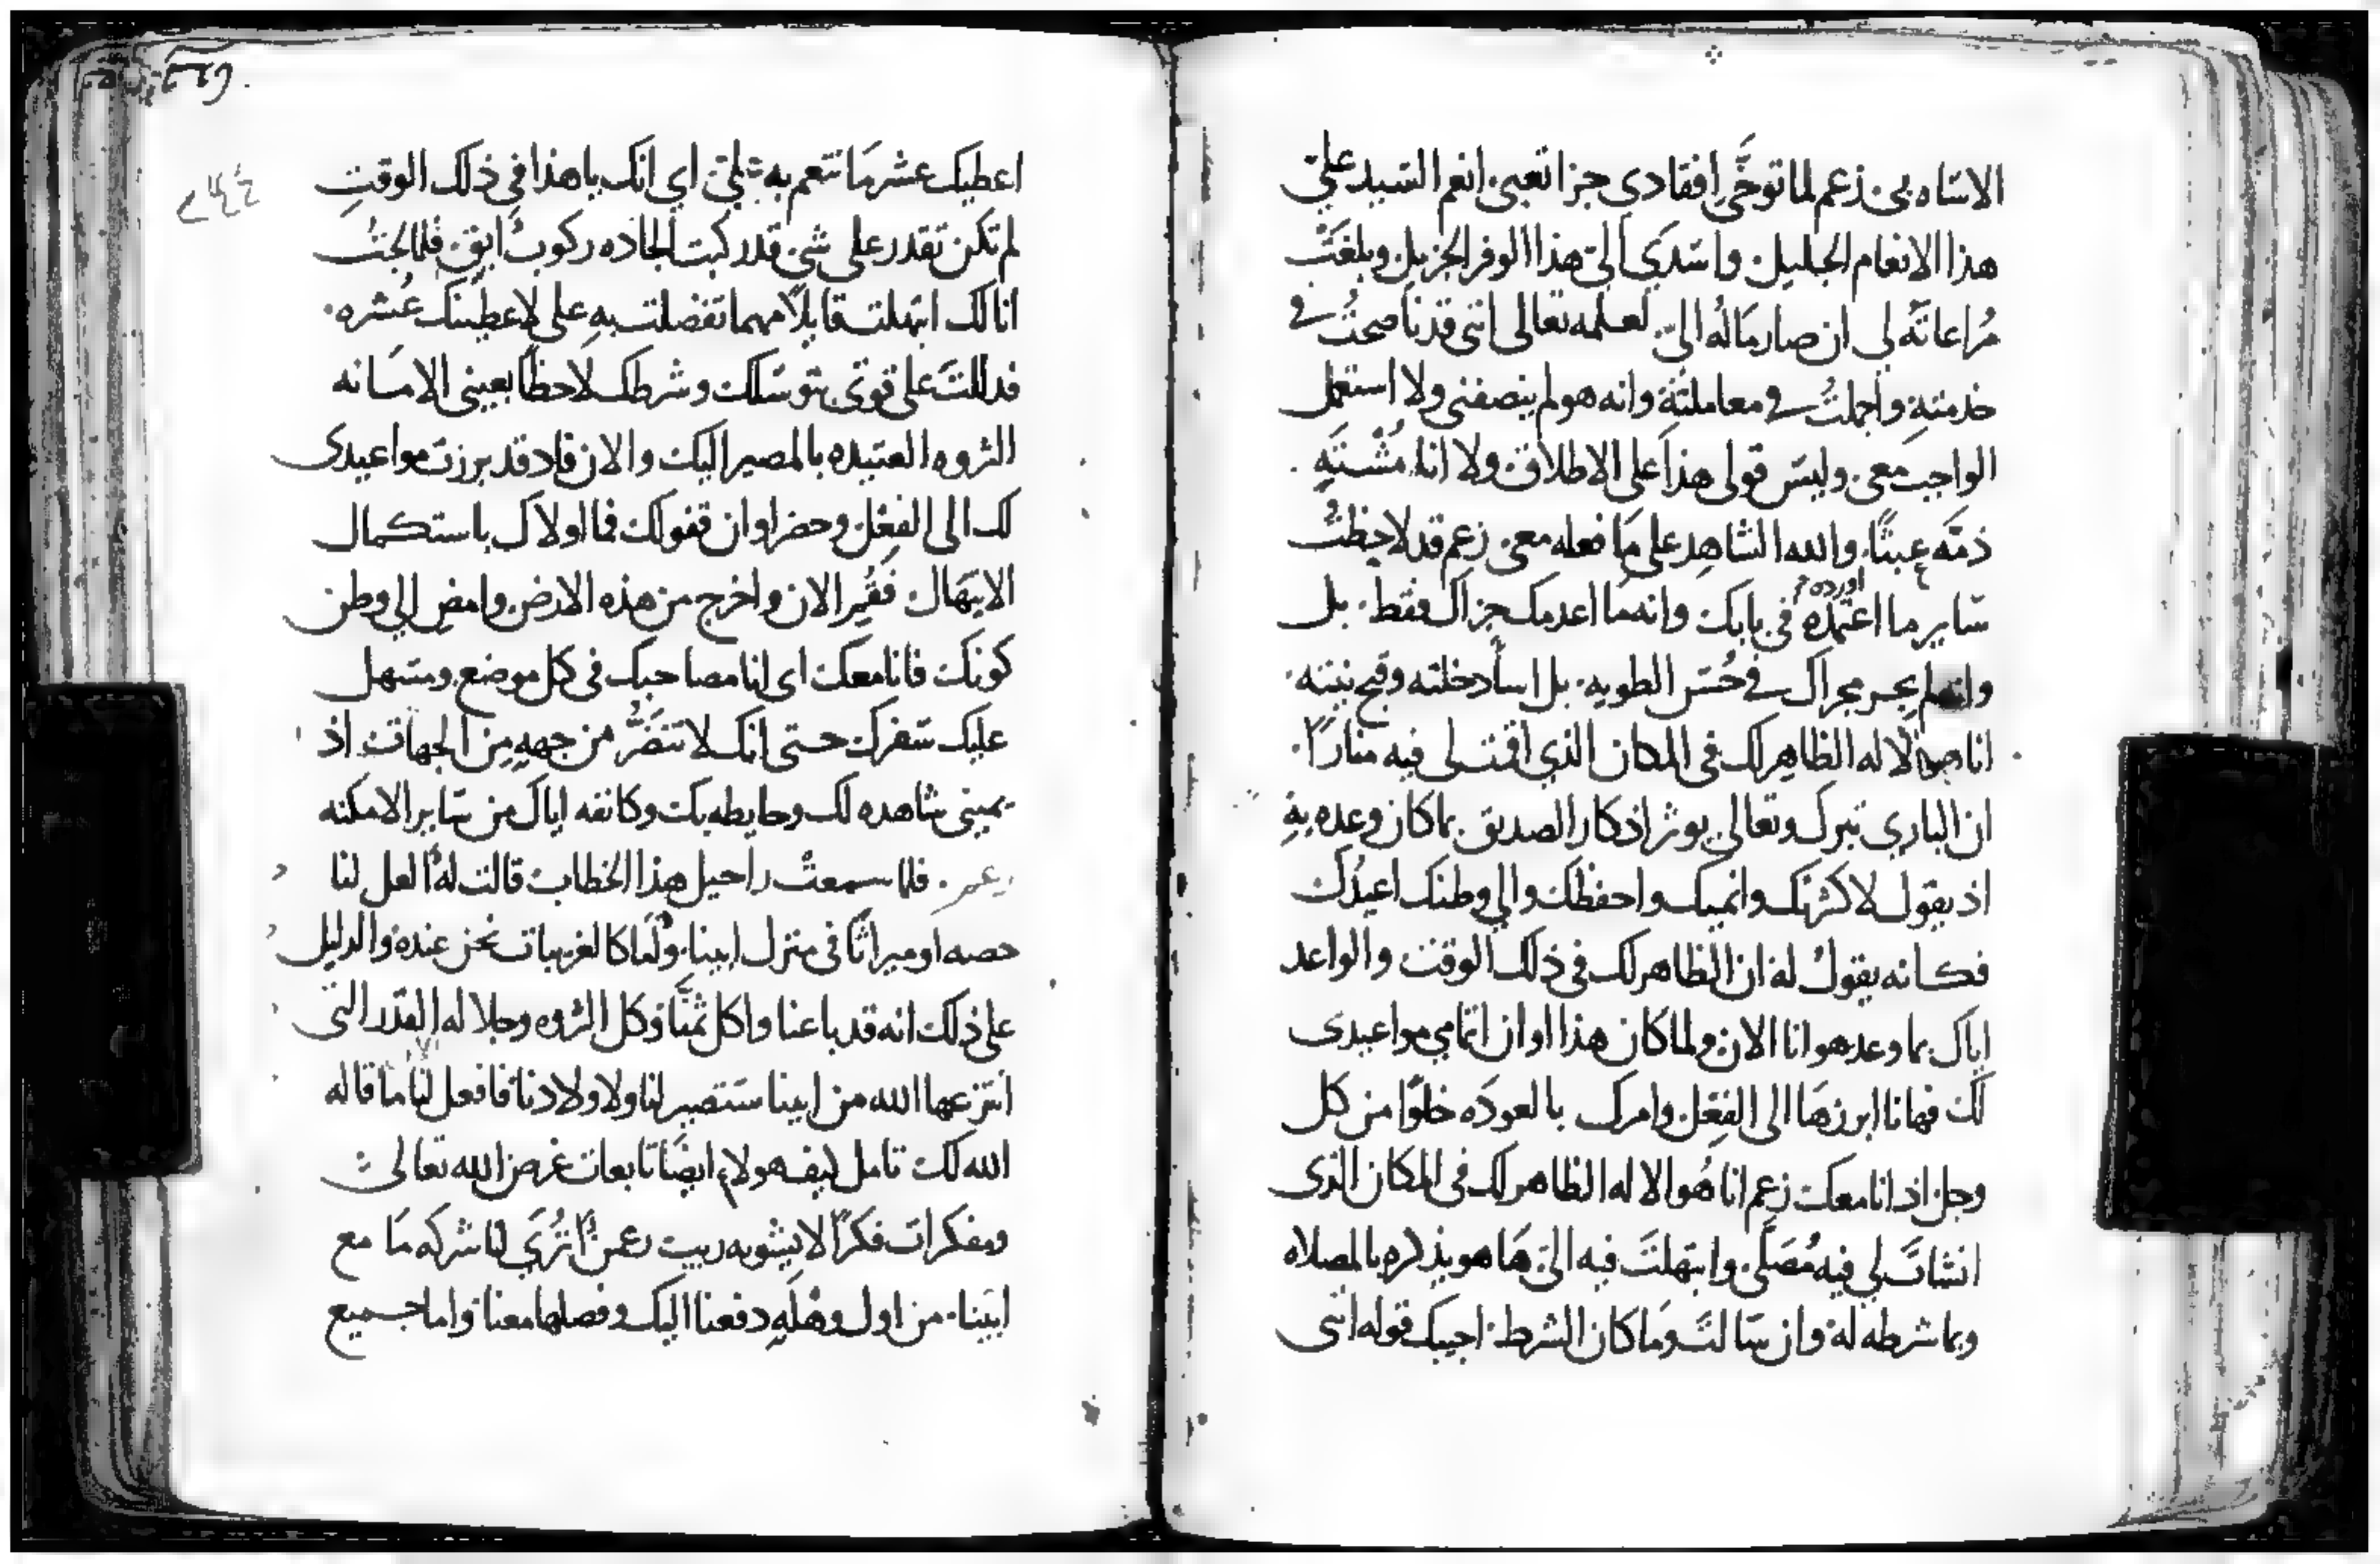 الاساه بى زعم لما توخَّي افقادى جزا تعبى انعم السيد علىّ
هذا الانعام الجليل واسدَي الىّ هذا الوفر الجزيل وبلغَتْ
مُراعاتَه لي ان صار مَالُه الىّ لعلمه تعالى اننى قد ناصحتُ في
خدمتهِ واجملتُ في معاملتِه وانه هو لم ينصفنى ولا استعمل
الواجب معى وليسَ قولى هذا على الاطلاق ولا انا مُشْتَهٍ
ذمَّه عبثًا والله الشاهد على مَا فعله معى زعم قد لاحظتُ
ساير ما اعتمده اورده فى بابك وانه ما اعدمك جزاك فقط بل
وانه لم يجر مجراك في حُسن الطويه بل اسأ دخلته وقبح نيته
انا هو الاله الظاهر لك فى المكان الذي اقمت لى فيه منارًا
ان البارى تبرك وتعالى يوثر اذكار الصديق بما كان وعده بهِ
اذ يقول لاكثرنك وانميك واحفظك والي وطنك اعيدك
فكانه يقول له ان الظاهر لك فى ذلك الوقت والواعد
اياك بما وعد هو انا الان ولما كان هذا اوان اتمامي مواعيدى
لك فهانا ابرزهَا الى الفعل وامرك بالعودَه خلوًا من كل
وجل اذ انا معك زعم انا هُو الاله الظاهر لك فى المكان الذى
انشات لي فيه مُصَلَّى وابتهلتَ فيه الىّ هَا هو يذكره بالمصلاه
وبما شرطه له وان سالت ومَا كان الشرط اجيبك قوله اننى
اعطيك عشر مَا تنعم به علىّ اي انك يا هذا في ذلك الوقتِ
لم تكن تقدر على شىٍ قد ركبت الجاده ركوبَ ابقٍ فلما لجتُ
انا لك ابتهلت قايلًا مهما تفضلت بهِ على لاعطينك عُشره
فدللتَ على قوتى بتوسلك وشرطك لاحظًا بعينى الامَانه
الثروه العتيده بالمصير اليك والان فاد قد برزت مواعيدى
لك الى الفعل وحضر اوان قفولك فما اولاك باستكمال
الابتهال فقُم الان واخرج من هذه الارض وامضِ الي وطن
كونك فانا معك اى انا مصاحبك فى كل موضع ومسهل
عليك سَفرك حتى انك لا تتضَرُّ من جههٍ مِن الجهات اذ
يمينى شاهده لك وحايطه بك وكانفه اياك من سَاير الامكنه
زعم فلما سمعتْ راحيل هذا الخطاب قالت لهُ العل لنا
حصه او ميراثًا فى منزل ابينا ولَما كالغريبات نحن عنده والدليل
على ذلك انه قد باعنا واكل ثمنَّا وكل الثروه وجلاله القدر التى
انتزعها الله من ابينا سَتصير لنا ولاولادنا فافعل لنا ما قاله
الله لك تامل كيف هولاء ايضًا تابعات غرض الله تعالى
ومفكرات فكرًا لا يشوبه ريب زعمن اتُرَي لنا شركه مَا مع
ابينا من اول وهْلَهٍ دفعنا اليك وفصلها معنا واما جميع